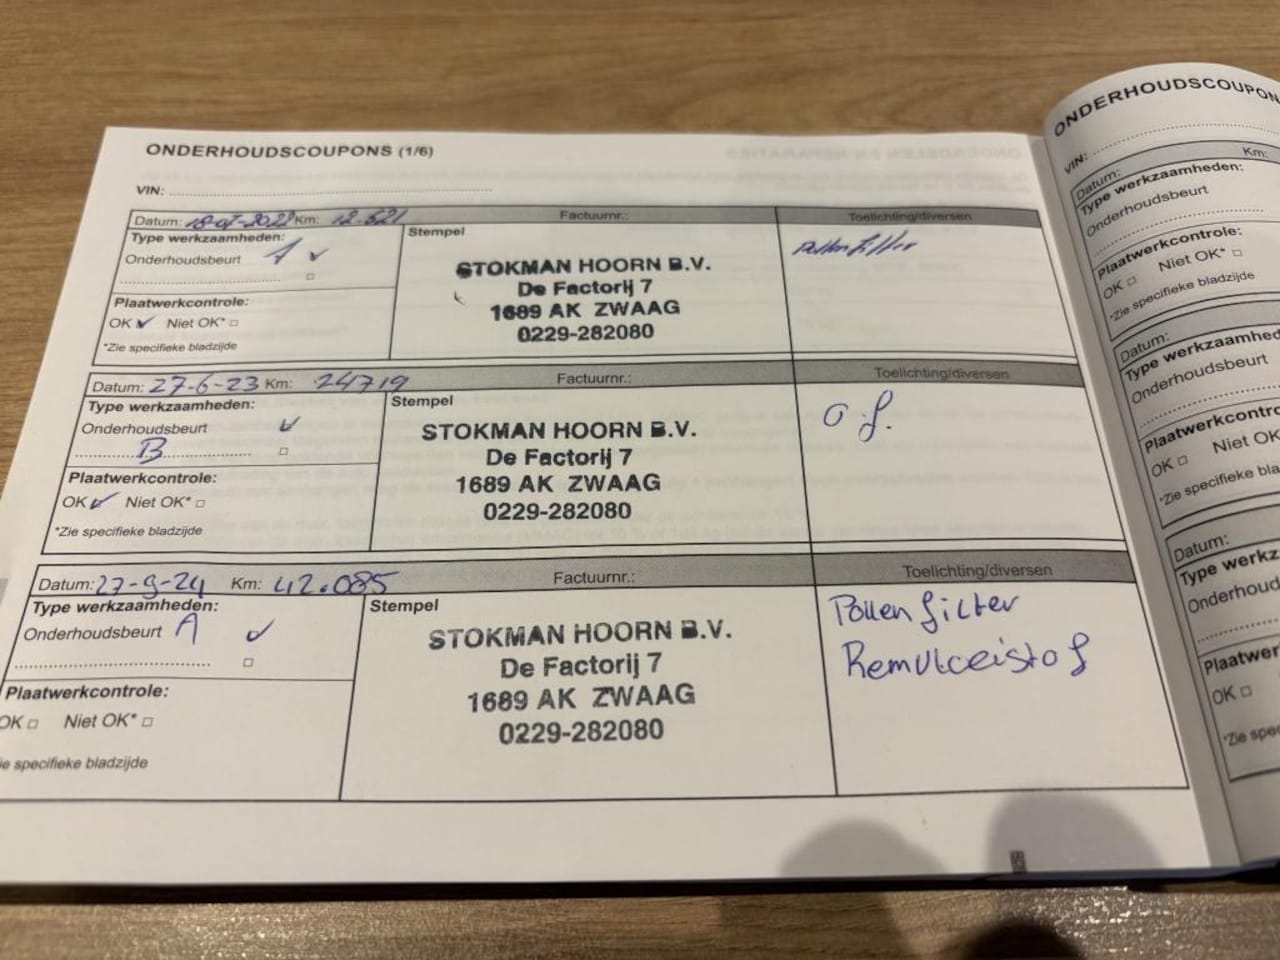 ONDERHOUDSCOUPONS (1/6)
VIN:
Datum: 18-07-2022 Km: 12.621 Factuurnr.: Toelichting/diversen
Type werkzaamheden: Stempel
Onderhoudsbeurt A
Pollenfilter
STOKMAN HOORN B.V.
De Factorij 7
1689 AK ZWAAG
0229-282080
Plaatwerkcontrole:
OK Niet OK*
*Zie specifieke bladzijde
Datum: 27-6-23 Km: 24719 Factuurnr.: Toelichting/diversen
Type werkzaamheden: Stempel
Onderhoudsbeurt
B
o f.
STOKMAN HOORN B.V.
De Factorij 7
1689 AK ZWAAG
0229-282080
Plaatwerkcontrole:
OK Niet OK*
*Zie specifieke bladzijde
Datum: 27-9-24 Km: 42.085 Factuurnr.: Toelichting/diversen
Type werkzaamheden: Stempel
Onderhoudsbeurt A
Pollenfilter
Remvloeistof
STOKMAN HOORN B.V.
De Factorij 7
1689 AK ZWAAG
0229-282080
Plaatwerkcontrole:
OK Niet OK*
ie specifieke bladzijde
ONDERHOUDSCOUPON
VIN:
Datum: Km:
Type werkzaamheden:
Onderhoudsbeurt
Plaatwerkcontrole:
OK Niet OK*
*Zie specifieke bladzijde
Datum:
Type werkzaamhed
Onderhoudsbeurt
Plaatwerkcontro
OK Niet OK
*Zie specifieke
Datum:
Type werkza
Onderhoud
Plaatwer
OK
*Zie spe